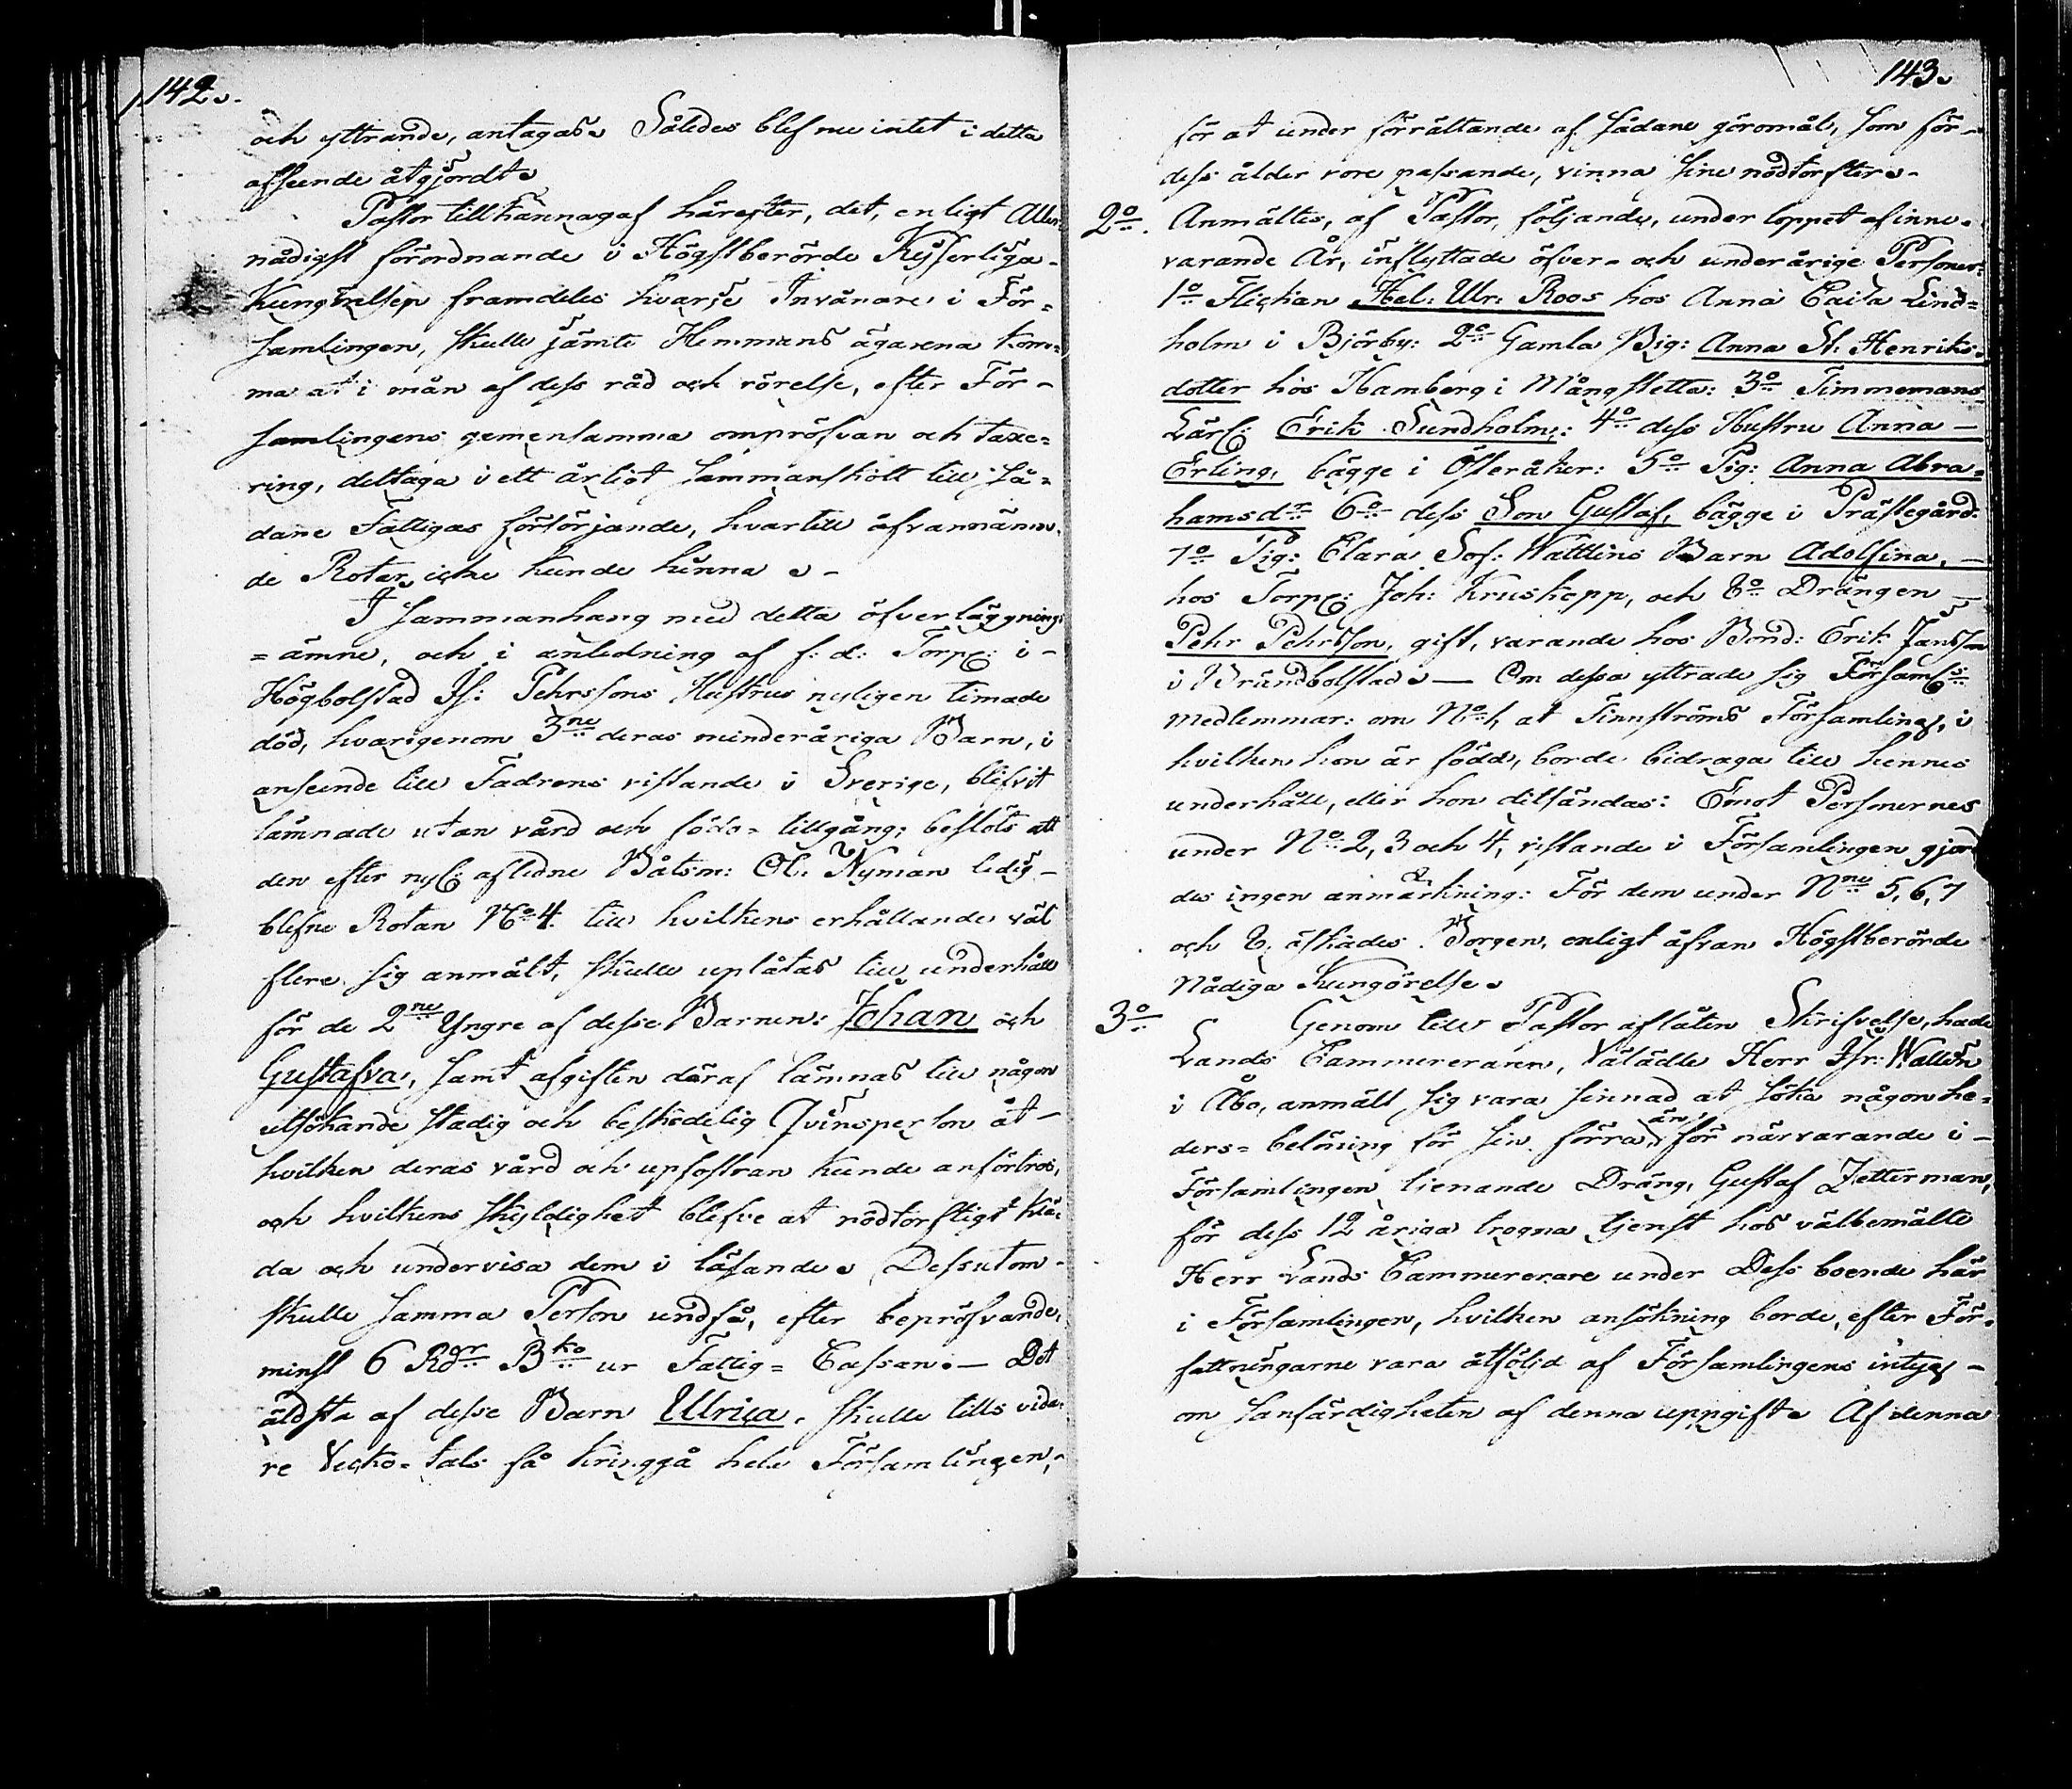 142.
och yttrande, antagas. Således blef nu intet i detta
afseende åtgjordt.
Pastor tillkännagaf härefter, det, enligt Aller-
nådigst förordnande i Högstberörde Keyserliga
Kungörelsen framdeles hvarje Invånare i För-
samlingen, skulle jämte Hemmans ägarena kom-
ma at i mån af dess råd och rörelse, efter För-
samlingens gemensamma ompröfvan och taxe-
ring, deltaga i ett årligt sammanskott till så-
dane Fattigas försörjande, hvartill ofvannämn-
de Rotar icke kunde hinna.
I sammanhang med detta öfverläggnings
= ämne, och i anledning af f: d: Torp: i
Högbolstad Is: Pehrssons Hustrus nyligen timade
död, hvarigenom 3ne deras minderåriga Barn, i
anseende till Fadrens vistande i Sverige, blifvit
lämnade utan vård och födo-tillgång; beslöts att
den efter nyl: aflidne Båtsm: Ol: Nyman ledig-
blefne Rotan No 4. till hvilkens erhållande väl
flere sig anmält, skulle uplåtas till underhåll
för de 2ne Yngre af desse Barnen: Johan och
Gustafva, samt afgiften däraf lämnas till någon
utsökande stadig och beskedelig Qvinsperson åt
hvilken deras vård och upfostran kunde anförtros,
och hvilkens skyldighet blefve at nödtorftigt klä-
da och undervisa dem i läsande. Dessutom
skulle samma Person undfå, efter bepröfvande,
minst 6 Rdr Bko ur Fattig-Cassan. — Det
äldsta af desse Barn Ulrica, skulle tills vida-
re Vecko-tals få kringgå hela Församlingen,
143.
för at under förrättande af sådane göromål, som för
dess ålder vore passande, vinna sine nödtorfter.
2o. Anmältes, af Pastor, följande, under loppet af inne-
varande År, inflyttade öfver- och underårige Personer:
1o Flickan Hel: Ulr: Roos hos Anna Caisa Lind-
holm i Björby: 2o Gamla Pig: Anna St. Henriks-
dotter hos Hamberg i Mångstetta: 3o Timmermans
Lärl: Erik Sundholm: 4o dess Hustru Anna
Erling, bägge i Österåker: 5o Pig: Anna Abra-
hamsdr 6o dess Son Gustaf, bägge i Prästegård:
7o Pig: Clara Sof: Wattlins Barn Adolfina,
hos Torp: Joh: Kruskopp, och 8o Drängen
Pehr Pehrsson, gift, varande hos Bond: Erik Jansson
i Brändbolstad. — Om dessa yttrade sig Församls
medlemmar: om No 1, at Finnströms Församling, i
hvilken hon är född, borde bidraga till hennes
underhåll, eller hon ditsändas: Emot Personernes
under No 2, 3 och 4, vistande i Församlingen gjor-
des ingen anmärkning: För dem under Nne 5, 6, 7
och 8. äskades Borgen, enligt ofvan Högstberörde
Nådiga Kungörelse.
3o Genom till Pastor aflåten Skrifvelse, hade
Lands Cammereraren, Väladle Herr Isr: Wallén
i Åbo, anmält sig vara sinnad at söka någon he-
ders-belöning för sin förra, än för närvarande i
Församlingen tjenande Dräng, Gustaf Zetterman,
för dess 12 åriga trogna tjenst hos välbemälte
Herr Lands Cammererare under Dess boende här
i Församlingen, hvilken ansökning borde, efter För-
fattningarne vara åtföljd af Församlingens intyg
om sanfärdigheten af denna uppgift. Af denna